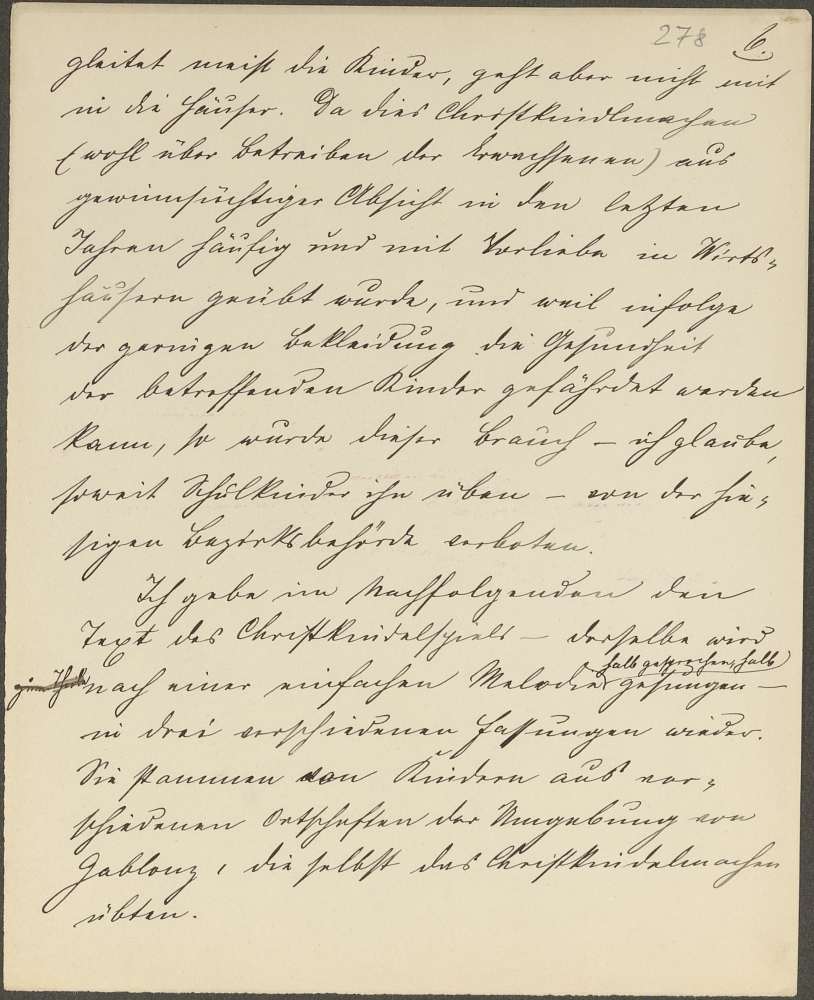 278 6.
gleitet meist die Kinder, geht aber nicht mit
in die Häuser. Da dies Christkindlmachen
(wohl über Betreiben der Erwachsenen) aus
gewinnsüchtiger Absicht in den letzten
Jahren häufig und mit Vorliebe in Wirts-
häusern geübt wurde, und weil infolge
der geringen Bekleidung die Gesundheit
der betreffenden Kinder gefährdet werden
kann, so wurde dieser Brauch – ich glaube,
soweit Schulkinder ihn üben – von der hie-
sigen Bezirksbehörde verboten.
Ich gebe im Nachfolgenden den
Text des Christkindelspiels – derselbe wird
halb gesprochen, halb
zum Theile nach einer einfachen Melodie gesungen –
in drei verschiedenen Fassungen wieder.
Sie stammen von Kindern aus ver-
schiedenen Ortschaften der Umgebung von
Gablonz, die selbst das Christkindelmachen
übten.